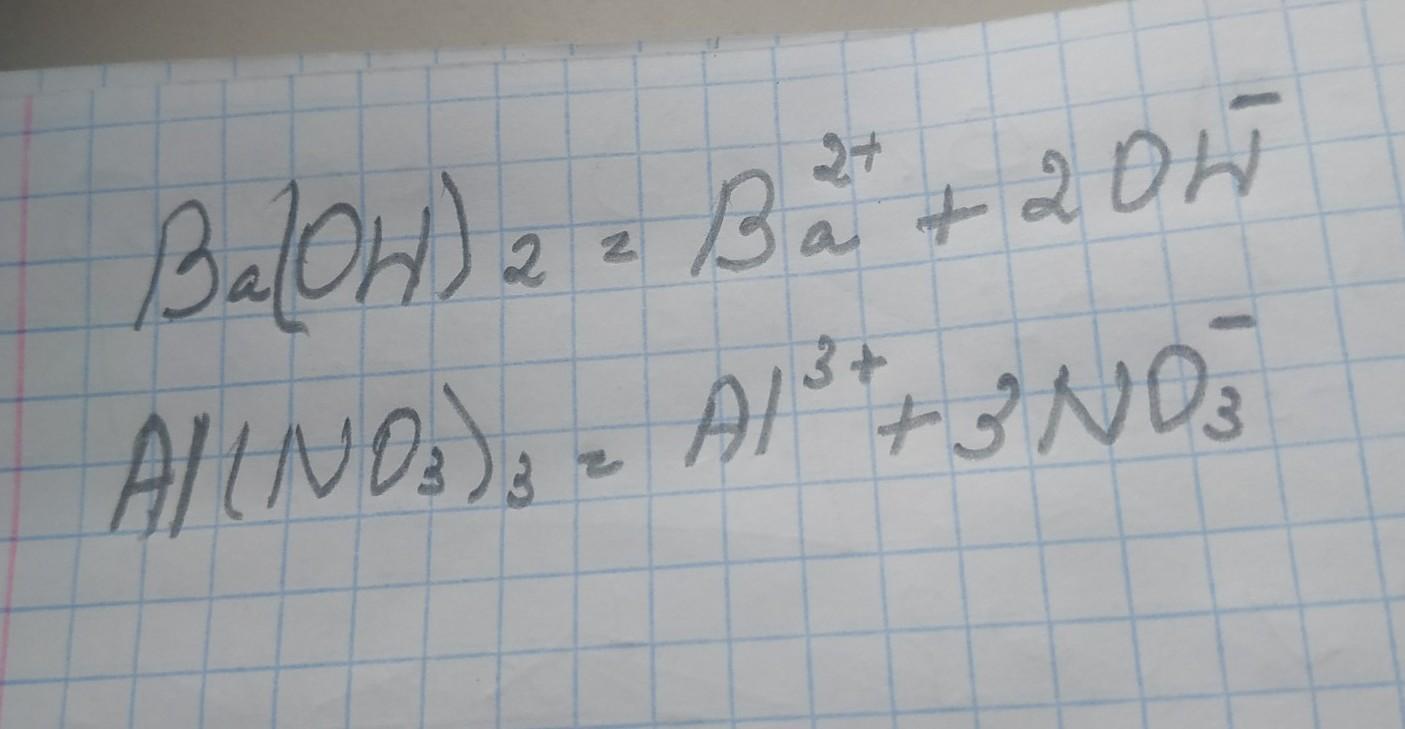 Ba(OH)₂ = Ba²⁺ + 2OH⁻
Al(NO₃)₃ = Al³⁺ + 3NO₃⁻